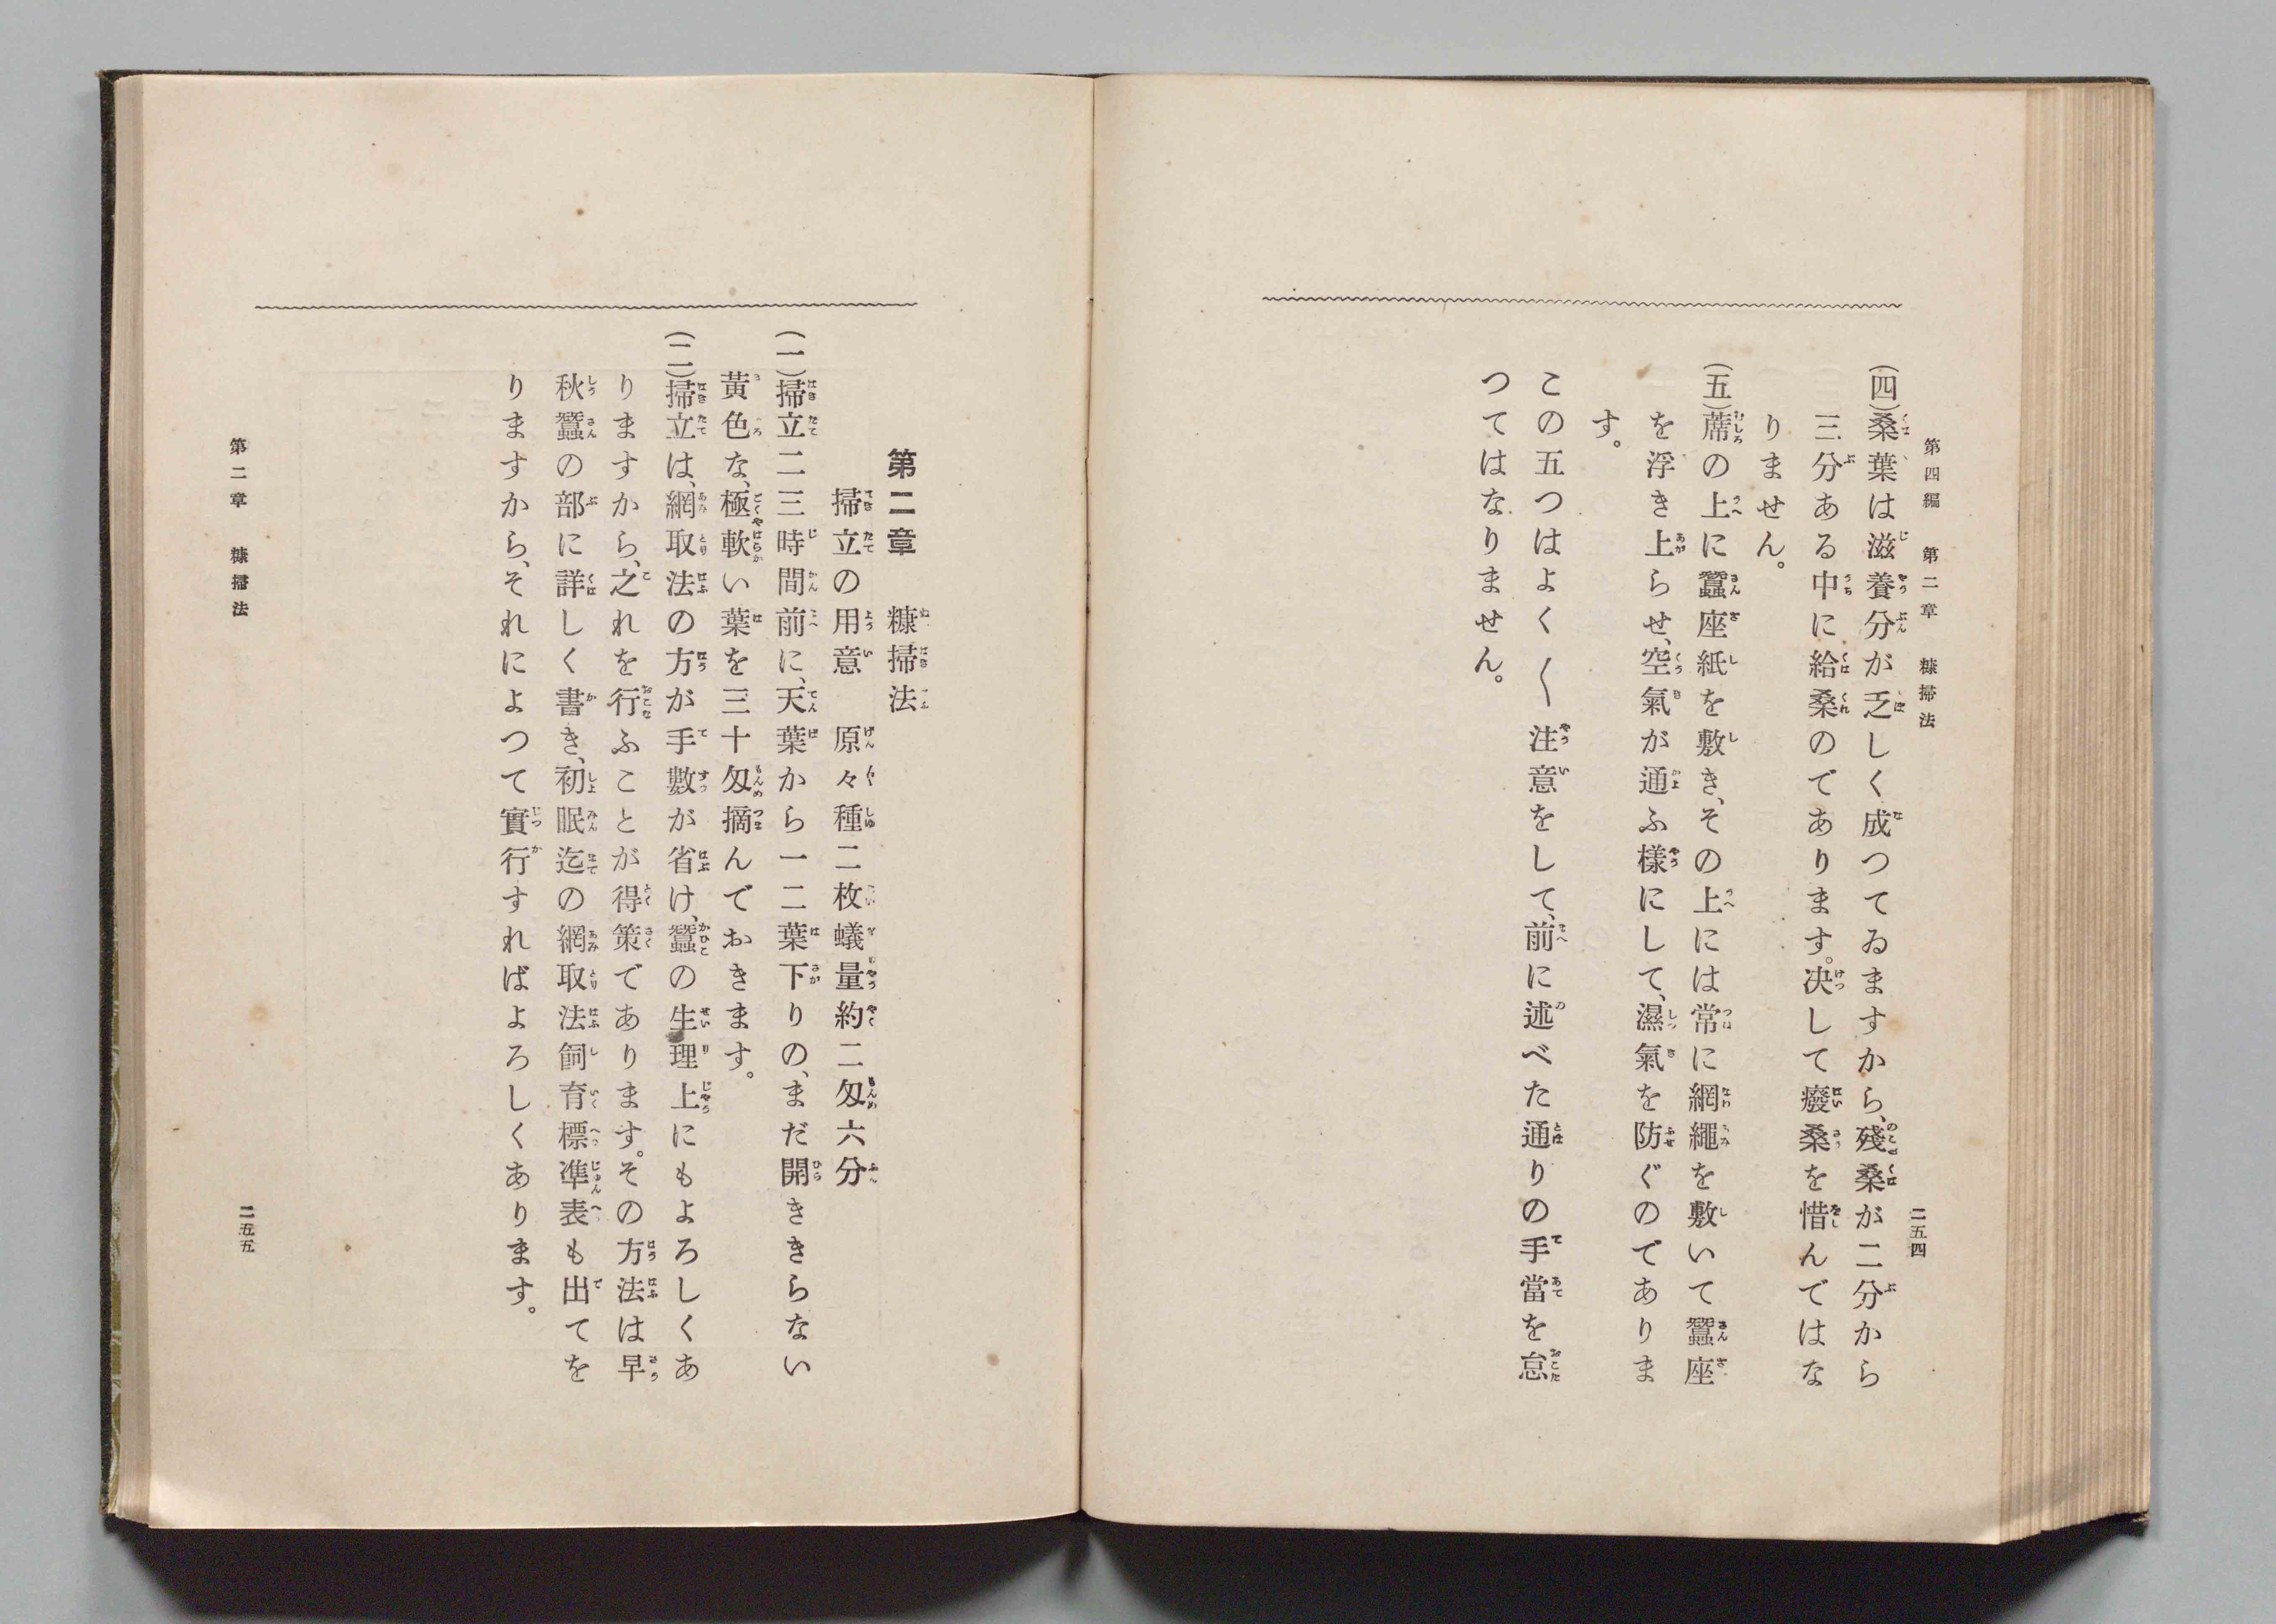 第四編　第二章　糠掃法
二五四
(四)桑葉は滋養分が乏しく成つてゐますから、殘桑が二分から
三分ある中に給桑のであります。决して癈桑を惜んではな
りません。
(五)蓆の上に蠶座紙を敷き、その上には常に網繩を敷いて蠶座
を浮き上らせ、空氣が通ふ樣にして、濕氣を防ぐのでありま
す。
この五つはよく〱注意をして、前に述べた通りの手當を怠
つてはなりません。
第二章　糠掃法
掃立の用意　原々種二枚蟻量約二匁六分
(一)掃立二三時間前に、天葉から一二葉下りの、まだ開ききらない
黄色な、極軟い葉を三十匁摘んでおきます。
(二)掃立は、網取法の方が手數が省け、蠶の生理上にもよろしくあ
りますから、之れを行ふことが得策であります。その方法は早
秋蠶の部に詳しく書き、初眠迄の網取法飼育標準表も出てを
りますから、それによつて實行すればよろしくあります。
第二章　糠掃法
二五五